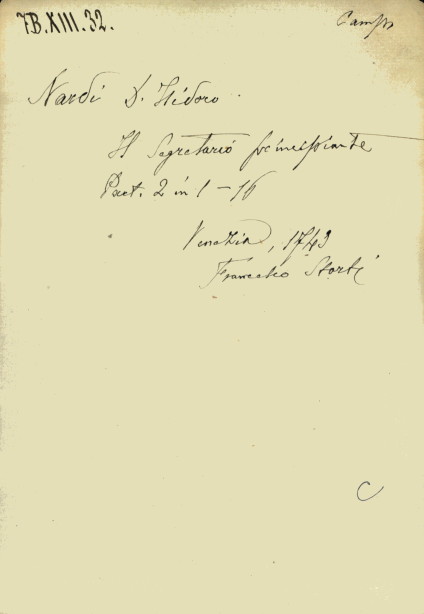 7.B.XIII.32.
Camps
Nardi D. Isidoro.
Il Segretario principiante
Part. 2 in 1 - 16
Venezia, 1743
Francesco Storti
C